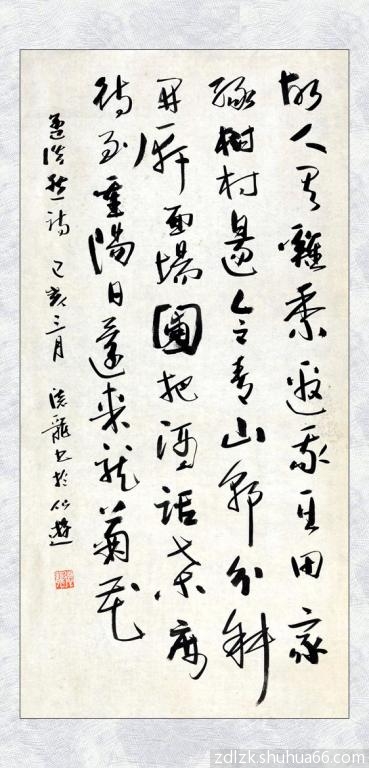 故人具雞黍邀我至田家
綠樹村邊合青山郭外斜
開軒面場圃把酒話桑麻
待到重陽日還來就菊花
孟浩然詩 己亥三月 德龍書於仙遊
zdlzk.shuhua66.com